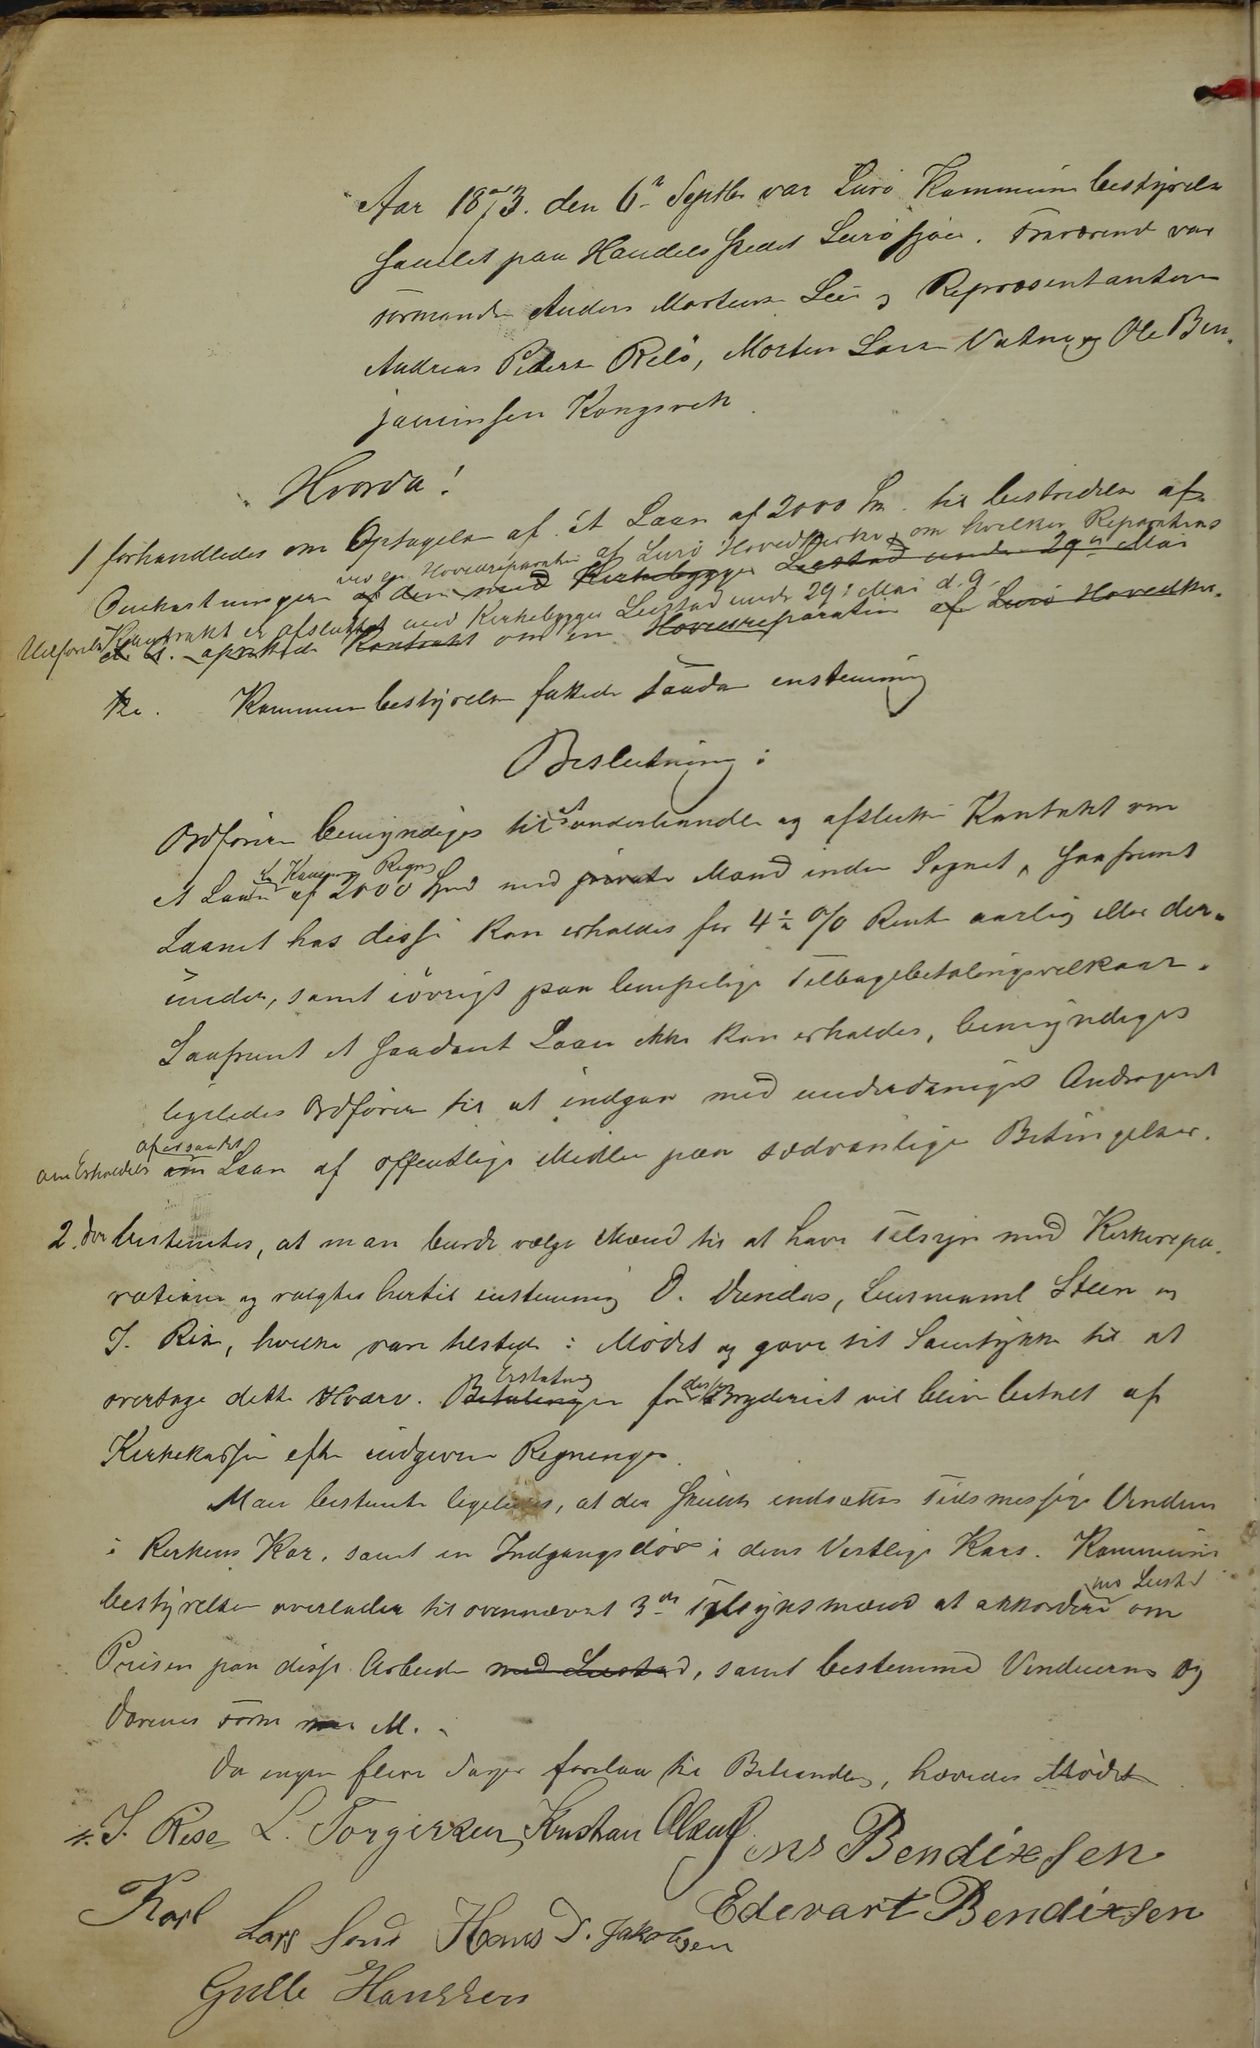 Aar 1873. den 6te Septbr var Lurö Kommunebestyrelse
samlet paa Handelsstedet Lurösjöen. Fraværende var
Formand Anders Mortens Lee og Repræsentanterne
Andreas Peders Relö, Morten Lars Vatne og Ole Ben-
jaminsen Kongsvik.
Hvorda!
1 forhandledes om Optagelse af et Laan af 2000 Spd. til bestridelse af
ved en Hovedreparation af Lurö Hovedkirke, om hvilken Reparations
Omkostningerne af den med Kirkebygger Lustad under 29de Mai
Udførelse Kontrakt er afsluttet med Kirkebygger Lustad under 29de Mai d. A.
d. A. oprettede Kontrakt om en Hovedreparation af Lurö Hovedkir-
ke. Kommunebestyrelsen fattede saadan enstemmig
Beslutning:
Ordføreren bemyndiges til at underhandle og afslutte Kontrakt om
Kommunes Regn
et Laan af 2000 Spd med private Mænd inden Sognet, saafremt
Laanet hos disse kan erholdes for 4½ % Rente aarlig eller der-
under, samt iövrigt paa lempelige Tilbagebetalingsvilkaar.
Saafremt et saadant Laan ikke kan erholdes, bemyndiges
ligeledes Ordföreren til at indgaa med underdanigst Andragende
om Erholdelse af om Laan af offentlige Midler paa sedvanlige Betingelser.
2. Der bestemtes, at man burde vælge Mænd til at have Tilsyn med Kirkerepa-
rationen og valgtes hertil enstemmig O. Dundas, Lensmand Steen og
J. Rise, hvilke vare tilstede i Mödet og gave sit Samtykke til at
Erstatning
overtage dette Hværv. Betalingen for dette Bryderiet vil blive betalt af
Kirkekassen efter indgivne Regninger.
Man bestemte ligeledes, at der skulde indsættes tidsmessige Vinduer
i Kirkens Kor, samt en Indgangsdör i dens Vestlige Kors. Kommune
med Lustad
bestyrelsen overlader til ovennævnte 3de Tilsynsmænd at akkordere om
Prisen paa disse Arbeider med Lustad, samt bestemme Vinduernes og
Dørenes Form m. M.
Da ingen flere Sager forelaa til Behandling, hævedes Mödet
J. Rise L. Torgersen Kristian Olsen Jens Bendixsen
Karl Lars Sand Hans D. Jakobsen Edevart Bendixsen
Gulle Hanssen